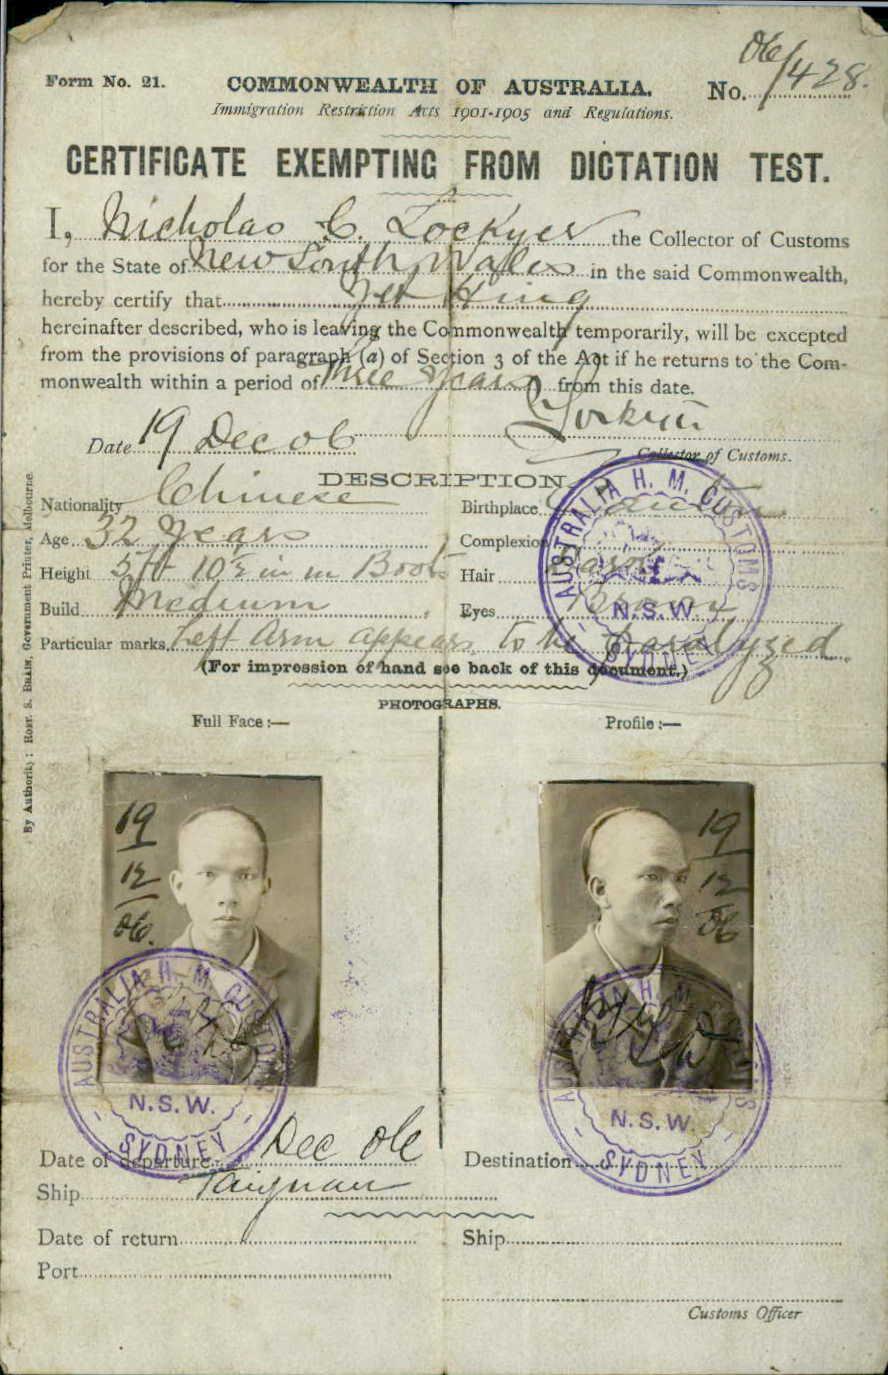 Form No. 21.
COMMONWEALTH OF AUSTRALIA.
No. 06/428.
Immigration Restriction Acts 1901-1905 and Regulations.
CERTIFICATE EXEMPTING FROM DICTATION TEST.
I, Nicholas C. Lockyer the Collector of Customs
for the State of New South Wales in the said Commonwealth,
hereby certify that King
hereinafter described, who is leaving the Commonwealth temporarily, will be excepted
from the provisions of paragraph (a) of Section 3 of the Act if he returns to the Com-
monwealth within a period of Three Years from this date.
Lockyer
Date 19 Dec 06
Collector of Customs.
DESCRIPTION
Nationality Chinese
Birthplace Canton
Age 32 Years
Complexion
Height 5ft 10½ in in Boots
Hair Dark
Build Medium
Eyes Brown
Particular marks, Left Arm appears to be paralyzed
(For impression of hand see back of this document.)
PHOTOGRAPHS.
Full Face :—
Profile :—
19
12
06.
19
12
06
AUSTRALIA H. M. CUSTOMS
N.S.W.
SYDNEY
AUSTRALIA H. M. CUSTOMS
N.S.W.
SYDNEY
AUSTRALIA H. M. CUSTOMS
N.S.W.
SYDNEY
Date of departure Dec 06
Destination
Ship Taiyuan
Date of return
Ship
Port
Customs Officer
By Authority: ROBT. S. BRAIN, Government Printer, Melbourne.